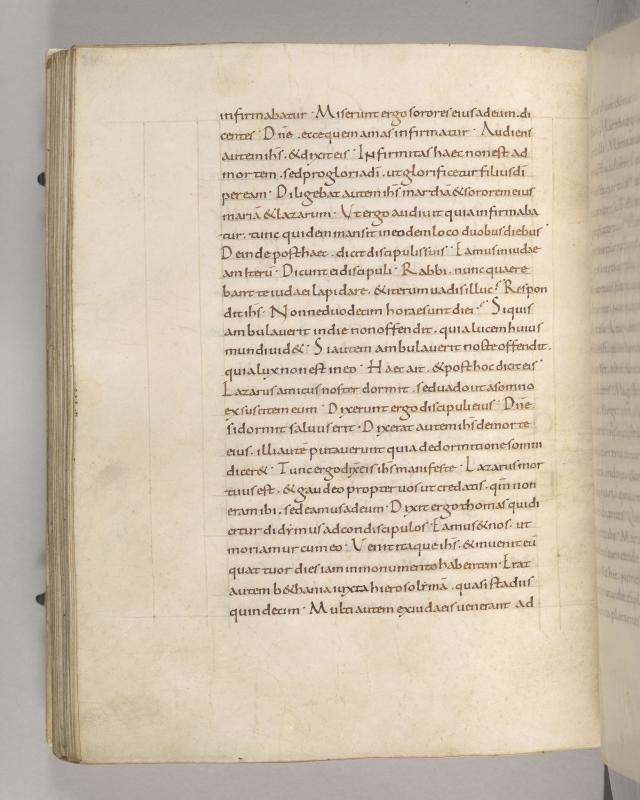 infirmabatur · Miserunt ergo sorores eius ad eum · di
centes · Dne · ecce quem amas infirmatur · Audiens
autem ihs · & dixit eis · Infirmitas haec non est ad
mortem · sed pro gloria di · ut glorificetur filius di
per eam · Diligebat autem ihs marthā & sororem eius
mariā & lazarum · Ut ergo audiuit quia infirmaba
tur · tunc quidem mansit in eodem loco duobus diebus ·
Deinde post haec · dicit discipulis suis · Eamus in iudae
am iterū · Dicunt ei discipuli · Rabbi · nunc quaere
bant te iudaei lapidare · & iterum uadis illuc · Respon
dit ihs · Nonne duodecim horae sunt diei · Si quis
ambulauerit in die non offendit · quia lucem huius
mundi uid& · Si autem ambulauerit nocte offendit ·
quia lux non est in eo · Haec ait · & post hoc dicit eis ·
Lazarus amicus noster dormit · sed uado ut a somno
exsuscitem eum · Dixerunt ergo discipuli eius · Dne
si dormit saluus erit · Dixerat autem ihs de morte
eius · illi autē putauerunt quia de dormitione somni
dicer& · Tunc ergo dix eis ihs manifeste · Lazarus mor
tuus est · & gaudeo propter uos ut credatis · qm non
eram ibi · sed eamus ad eum · Dixit ergo thomas qui di
citur didymus ad condiscipulos · Eamus & nos · ut
moriamur cum eo · Uenit itaque ihs · & inuenit eū
quattuor dies iam in monumento habentem · Erat
autem b&hania iuxta hierosolymā · quasi stadiis
quindecim · Multi autem ex iudaeis uenerant ad